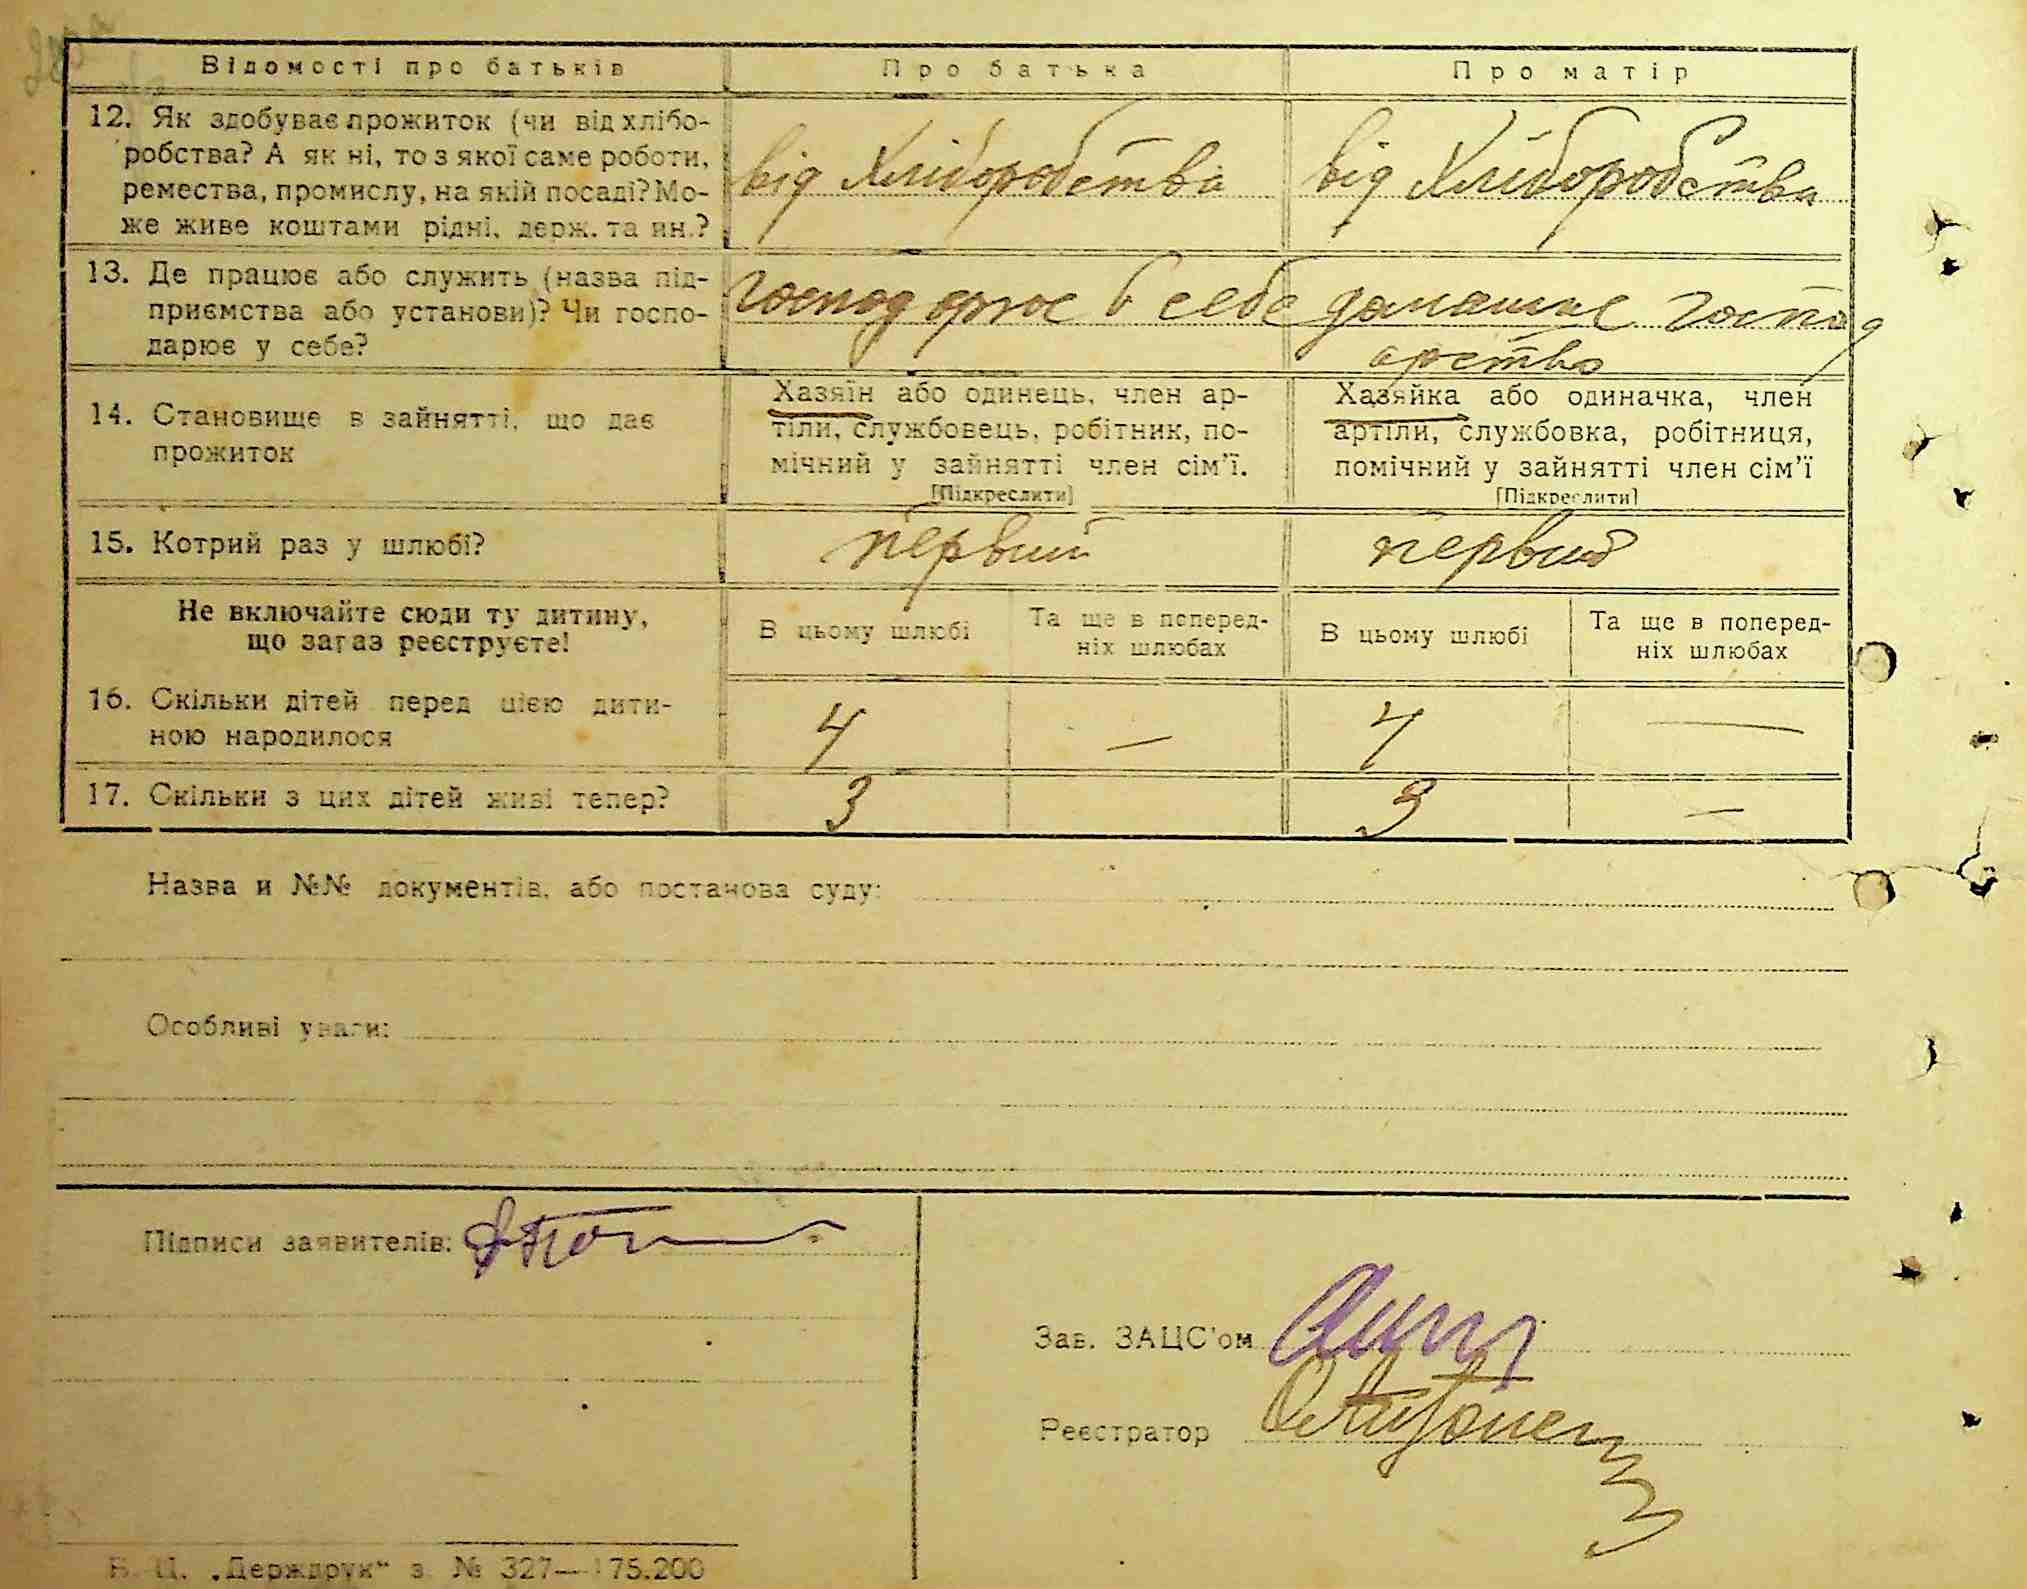 Відомості про батьків Про батька Про матір
12. Як здобуває прожиток (чи від хлібо-
робства? А як ні, то з якої саме роботи,
ремества, промислу, на якій посаді? Мо-
же живе коштами рідні, держ. та ин.?
від хліборобства від хліборобства
13. Де працює або служить (назва під-
приємства або установи)? Чи госпо-
дарює у себе?
господарює в себе домашнє господ
арство
14. Становище в зайнятті, що дає
прожиток
Хазяїн або одинець, член ар-
тіли, службовець, робітник, по-
мічний у зайнятті член сім’ї.
[Підкреслити]
Хазяйка або одиначка, член
артіли, службовка, робітниця,
помічний у зайнятті член сім’ї
[Підкреслити]
15. Котрий раз у шлюбі? первий первий
Не включайте сюди ту дитину,
що зараз реєструєте!
В цьому шлюбі
Та ще в поперед-
ніх шлюбах
В цьому шлюбі
Та ще в поперед-
ніх шлюбах
16. Скільки дітей перед цією дити-
ною народилося
4 — 4 —
17. Скільки з цих дітей живі тепер? 3 3 —
Назва и №№ документів, або постанова суду:
Особливі уваги:
Підписи заявителів:
Зав. ЗАЦС’ом
Реєстратор
„Держдрук“ з. № 327—175.200